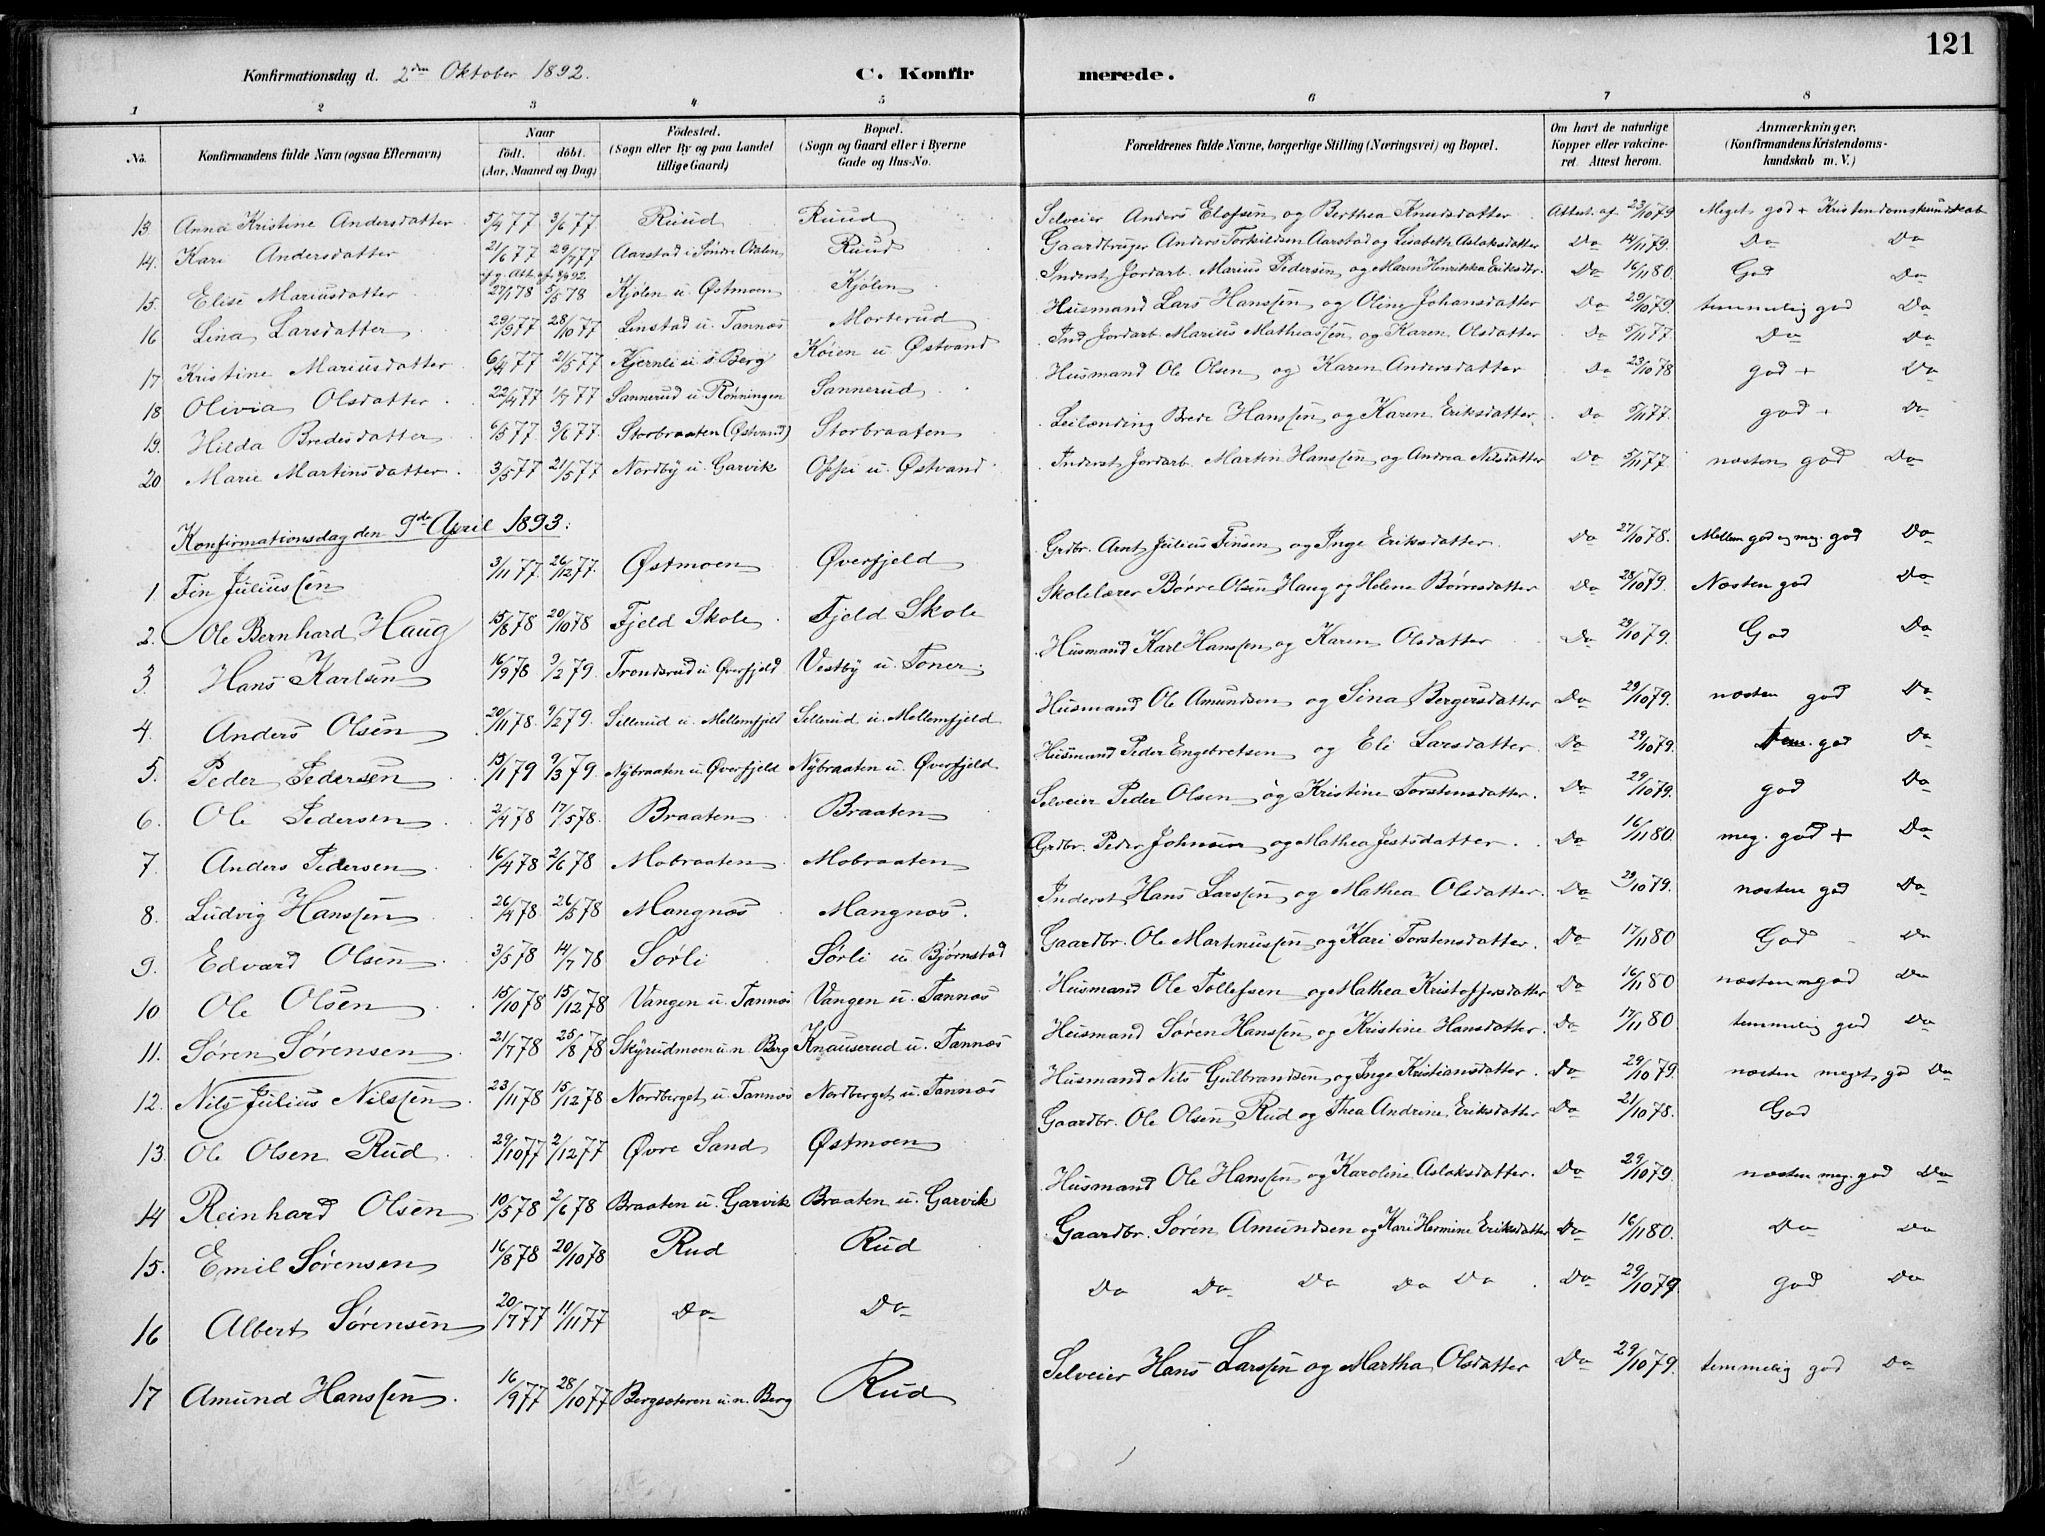 121
Konfirmationsdag d. 2den Oktober 1892. C. Konfirmerede.
1 2 3 4 5 6 7 8
No. Konfirmandens fulde Navn (ogsaa Efternavn) Naar födt. döbt. (Aar, Maaned og Dag) Födested. (Sogn eller By og paa Landet tillige Gaard) Bopæl. (Sogn og Gaard eller i Byerne Gade og Hus-No. Forældrenes fulde Navne, borgerlige Stilling (Næringsvei) og Bopæl. Om havt de naturlige Kopper eller vakcineret. Attest herom. Anmærkninger. (Konfirmandens Kristendomskundskab m. V.)
13 Anna Kristine Andersdatter 5/4 77 3/6 77 Ruud Ruud Selveier Anders Elofsen og Berthea Knudsdatter Attest af 23/10 79 Meget god + Kristendomskundskab
14. Kari Andersdatter 21/6 77 29/7 77 Aarstad i Søndre Odalen Ruud Gaardbruger Anders Torkildsen Aarstad og Lisabeth Aslaksdatter Do 14/11 79. Do Do
15. Elise Mariusdatter 27/1 78 5/5 78 Kjølen u. Østmoen Kjølen Inderst Jordarb. Marius Pedersen og Maren Henrikka Eriksdtr. Do 16/11 80 God Do
16 Lina Larsdatter 29/9 77 28/10 77 Linstad u. Tannæs Morterud Husmand Lars Hanssen og Oline Johansdatter Do 29/10 79. temmelig god Do
17 Kristine Mariusdatter 6/4 77 21/5 77 Kjernli u. s. Berg Køien u Østvand Ind Jordarb. Marius Mathiassen og Karen Olsdatter Do 5/11 77 Do Do
18 Olivia Olsdatter 22/4 77 1/7 77 Sannerud u. Rønningen Sannerud Husmand Ole Olsen og Karen Andersdatter Do 23/10 78 god + Do
19. Hilda Bredesdatter 6/5 77 3/6 77. Storbraaten (Østvand) Storbraaten Leilænding Brede Hanssen og Karen Eriksdatter. Do 5/11 77. god + Do
20 Marie Martinsdatter. 3/5 77 21/5 77 Nordby u. Garvik Oppi u. Østvand Inderst Jordarb. Martin Hanssen og Andrea Nilsdatter Do 5/11 77. næsten god Do
Konfirmationsdag den 9de April 1893.
1. Fin Juliussen 3/11 77. 26/12 77. Østmoen Øverfjeld Grdbr. Arnt Julius Finsen og Inge Eriksdatter. Do 27/10 78. Mellem god og meg. god Do
2. Ole Bernhard Haug 15/8 78 20/10 78 Fjeld Skole Fjeld Skole Skolelærer Børre Olsen Haug og Helene Børresdatter Do 28/10 79. Næsten god Do
3. Hans Karlsen 16/9 78 9/2 79. Trondsrud u. Øverfjeld Vestby u. Toner. Husmand Karl Hanssen og Karen Olsdatter Do 29/10 79. God Do
4. Anders Olsen 20/11 78. 9/2 79. Sillerud u. Mellemfjeld Sillerud u. Mellemfjeld Husmand Ole Amundsen og Sina Bergersdatter Do 29/10 79. næsten god Do
5. Peder Pedersen 13/1 79 9/3 79. Nybraaten u. Øverfjeld Nybraaten u. Øverfjeld Husmand Peder Engebretsen og Eli Larsdatter Do 29/10 79. tem. god Do
6. Ole Pedersen 2/4 78 17/5 78. Braaten Braaten Selveier Peder Olsen og Kristine Torstensdatter. Do 29/10 79. god Do
7. Anders Pedersen 16/4 78 2/6 78 Mobraaten Mobraaten Grdbr. Peder Johnsen og Mathea Jestsdatter. Do 16/11 80. meg. god + Do
8. Ludvig Hanssen 26/4 78 26/5 78 Mangnæs Mangnæs. Inderst Hans Larssen og Mathea Olsdatter. Do 29/10 79. næsten god Do
9. Edvard Olsen 3/5 78 14/7 78 Sørli Sørli u Bjørnstad Gaardbr. Ole Martinussen og Kari Torstensdatter. Do 17/11 80 God Do
10 Ole Olsen 15/10 78 15/12 78 Vangen u. Tannæs Vangen u. Tannæs Husmand Ole Tollefsen og Mathea Kristoffersdatter Do 16/11 80 næsten mgod Do
11. Søren Sørensen 21/7 78 25/8 78 Skyrudmoen u. n. Berg Knauserud u. Tannæs Husmand Søren Hanssen og Kristine Hansdatter. Do 17/11 80 temmelig god Do
12. Nils Julius Nilssen 23/11 78 15/12 78 Nordberget u. Tannæs Nordberget u. Tannæs Husmand Nils Gulbrandsen og Inge Kristiansdatter. Do 29/10 79. næsten meget gd Do
13. Ole Olsen Rud 29/10 77 2/12 77 Øvre Sand Østmoen Gaardbr. Ole Olsen Rud og Thea Andrine Eriksdatter Do 21/10 78. God
14 Reinhard Olsen 10/5 78 2/6 78 Braaten u. Garvik Braaten u. Garvik Husmand Ole Hanssen og Karoline Aslaksdatter. Do 29/10 79 næsten meg. god Do
15. Emil Sørensen 16/8 78 20/10 78 Rud Rud Gaardbr. Søren Amundsen og Kari Hermine Eriksdatter Do 16/11 80. Do Do
16 Albert Sørensen 20/7 77 11/11 77 Do Do Do Do Do Do Do Do 29/10 79 god Do
17 Amund Hanssen. 16/9 77 28/10 77 Bergsæteren u. n. Berg Rud Selveier Hans Larssen og Martha Olsdatter Do 29/10 79. temmelig god Do